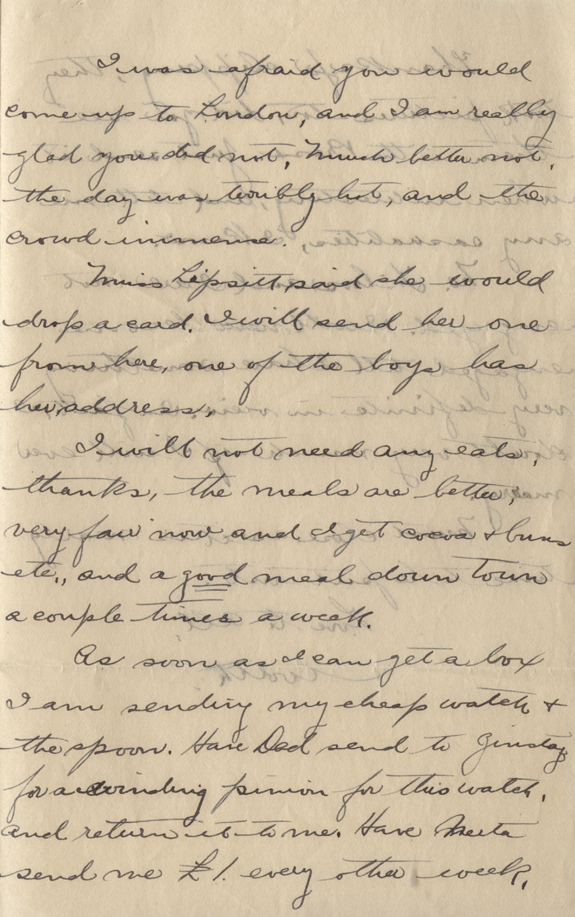 I was afraid you would
come up to London, and I am really
glad you did not, Much better not,
the day was terribly hot, and the
crowd immense.
Miss Lipsitt, said she would
drop a card. I will send her one
from here, one of the boys has
her address,
I will not need any eats,
thanks, the meals are better,
very fair now and I get cocoa & buns
etc., and a good meal down town
a couple times a week.
As soon as I can get a box
I am sending my cheap watch &
the spoon. Have Dad send to
for a winding pinion for this watch,
and return it to me. Have Meeta
send me £1. every other week,